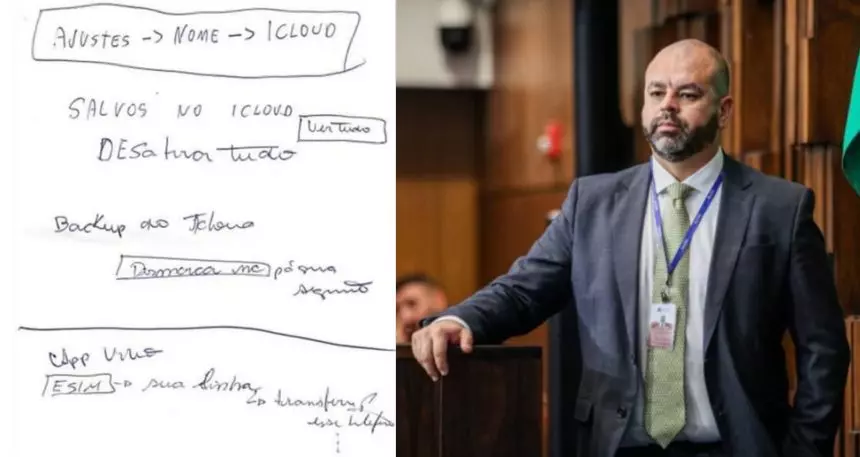 AJUSTES -> NOME -> ICLOUD
SALVOS NO ICLOUD
Ver tudo
DESativar tudo
Backup do
Desmarca na página
seguinte
App Vivo
ESIM -> sua linha
-> transferir
esse telefone